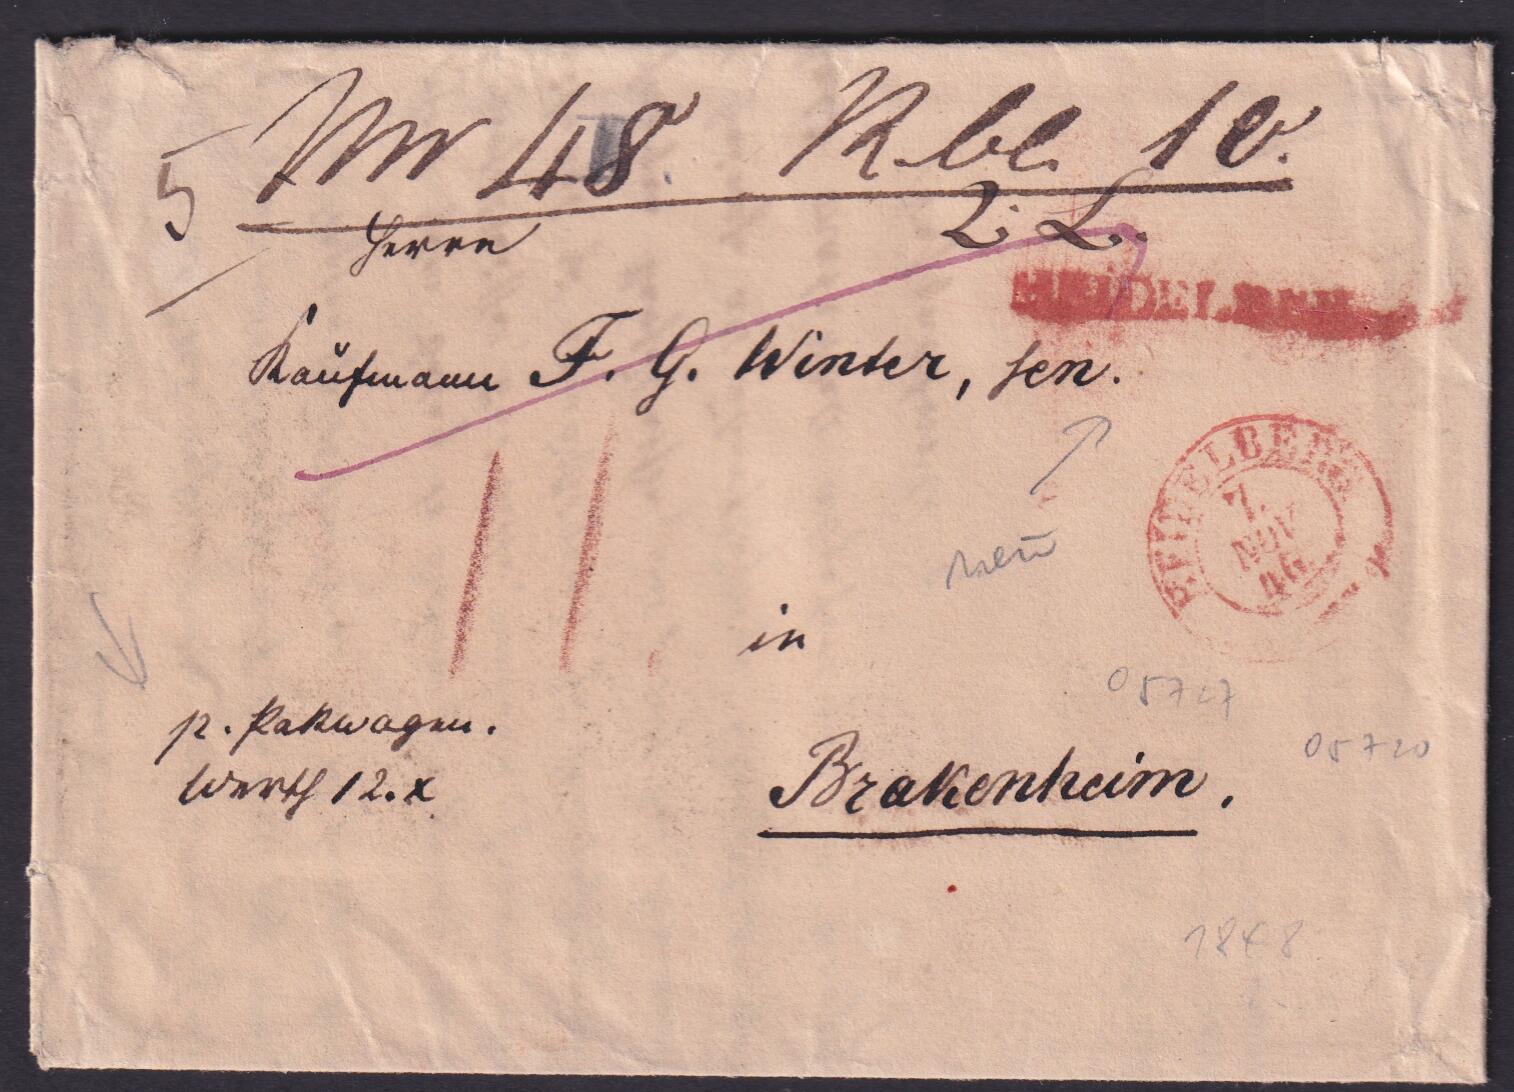 5
No 48. Rbl. 10.
2 L.
Herrn
HEIDELBERG
Kaufmann F. G. Winter, sen.
HEIDELBERG
7.
NOV
46.
11.
neu
in
05727
p. Pakwagen.
05720
Werth 12. x
Brakenheim.
1848